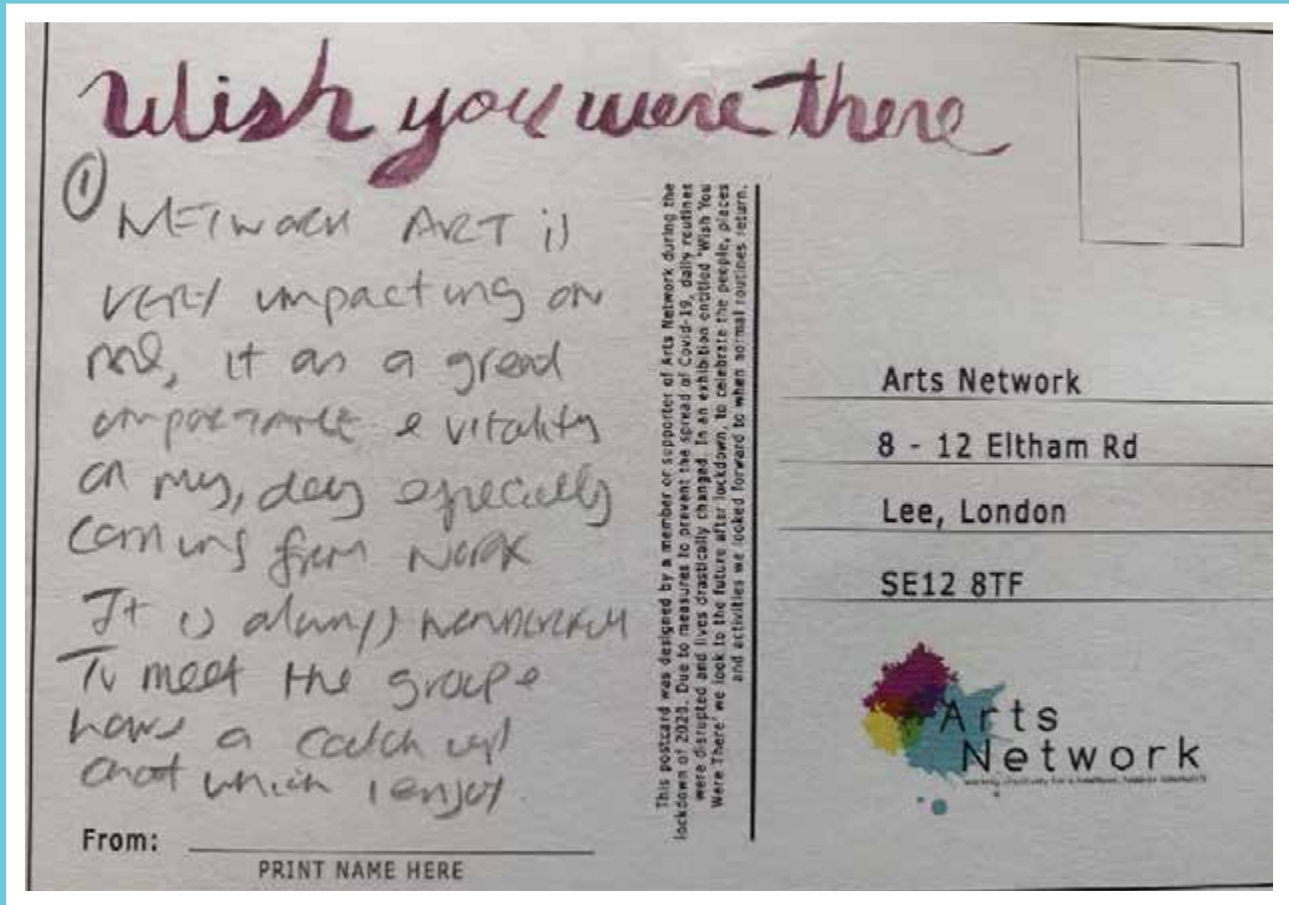 Wish you were there
①
NETWORK ART is
very impacting on
me, it as a great
importance & vitality
on my, day especially
coming from work
It is always wonderful
To meet the group &
have a catch up
chat which I enjoy.
From:
PRINT NAME HERE
This postcard was designed by a member or supporter of Arts Network during the
lockdown of 2020. Due to measures to prevent the spread of Covid-19, daily routines
were disrupted and lives drastically changed. In an exhibition entitled 'Wish You
Were There' we look to the future after lockdown, to celebrate the people, places
and activities we looked forward to when normal routines return.
Arts Network
8 - 12 Eltham Rd
Lee, London
SE12 8TF
Arts
Network